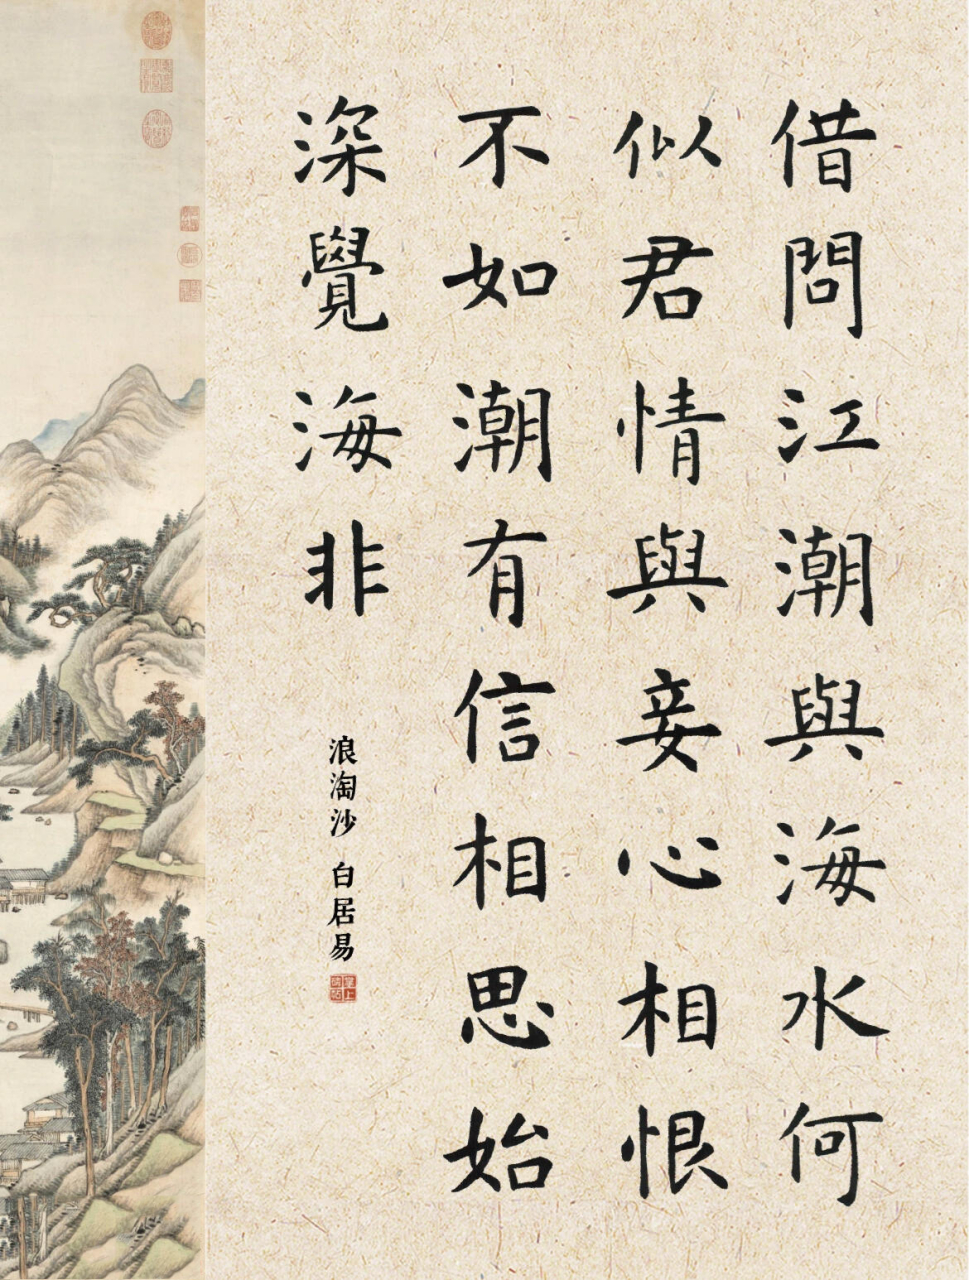 借問江潮與海水何
似君情與妾心相恨
不如潮有信相思始
深覺海非
浪淘沙 白居易